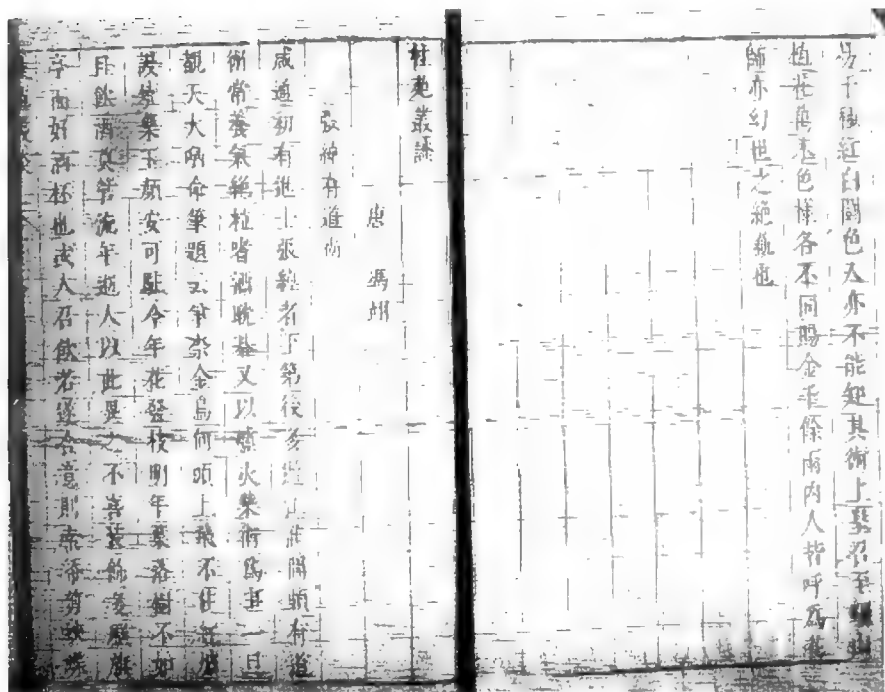 易千種紅白鬬色人亦不能知其術上皇召至驪山
植花萬本色樣各不同賜金千餘兩內人皆呼為花
師亦幻世之絕藝也
桂苑叢譚
唐 馮翊
張綽有道術
咸通初有進士張綽者下第後多遊江淮間頗有道
術常養氣絕粒嗜酒耽棊又以爐火藥術為事一旦
覩天大哂命筆題云爭奈金烏何頭上飛不住紅爐
謾燒藥玉顏安可駐今年花發枝明年葉落樹不如
且飲酒莫管流年逝人以此異之不喜裝飾多歷旗
亭而好酒杯也或人召飲若遂合意則索紙剪蛺蝶